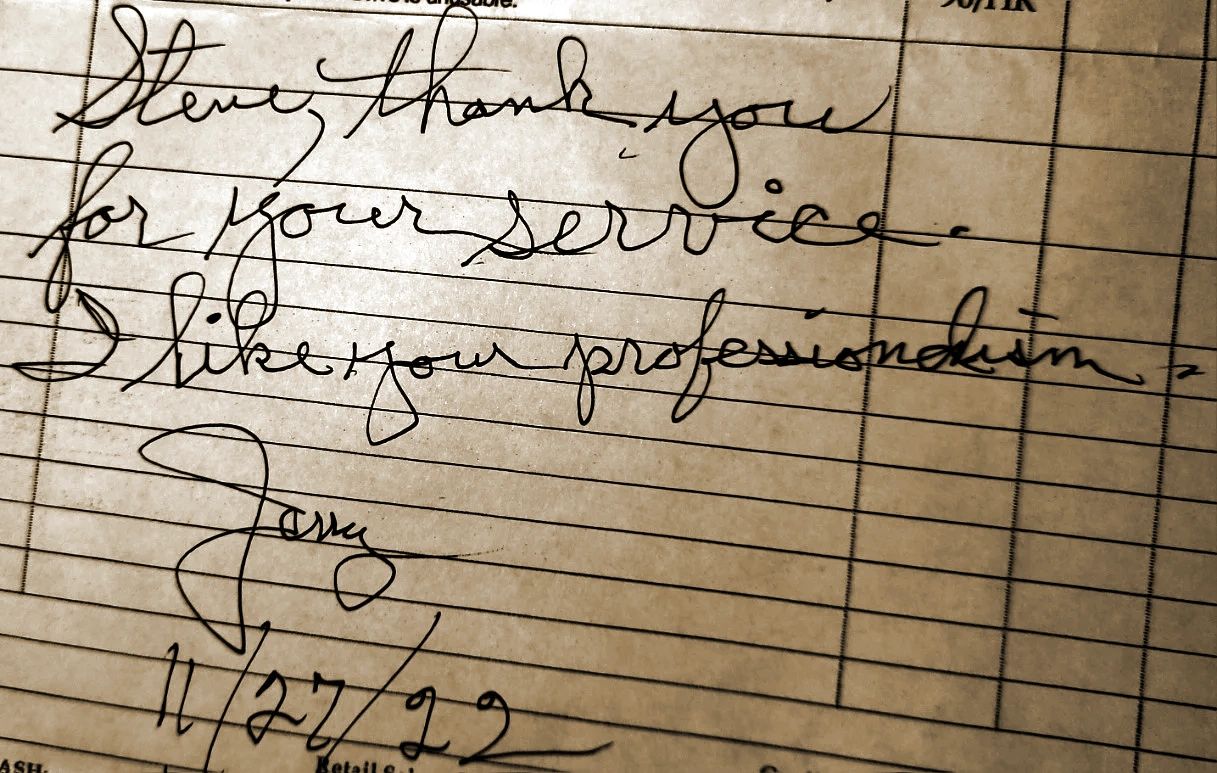 is unusable.
Steve, thank you
for your service.
I like your professionalism.
11/27/22
ASH.